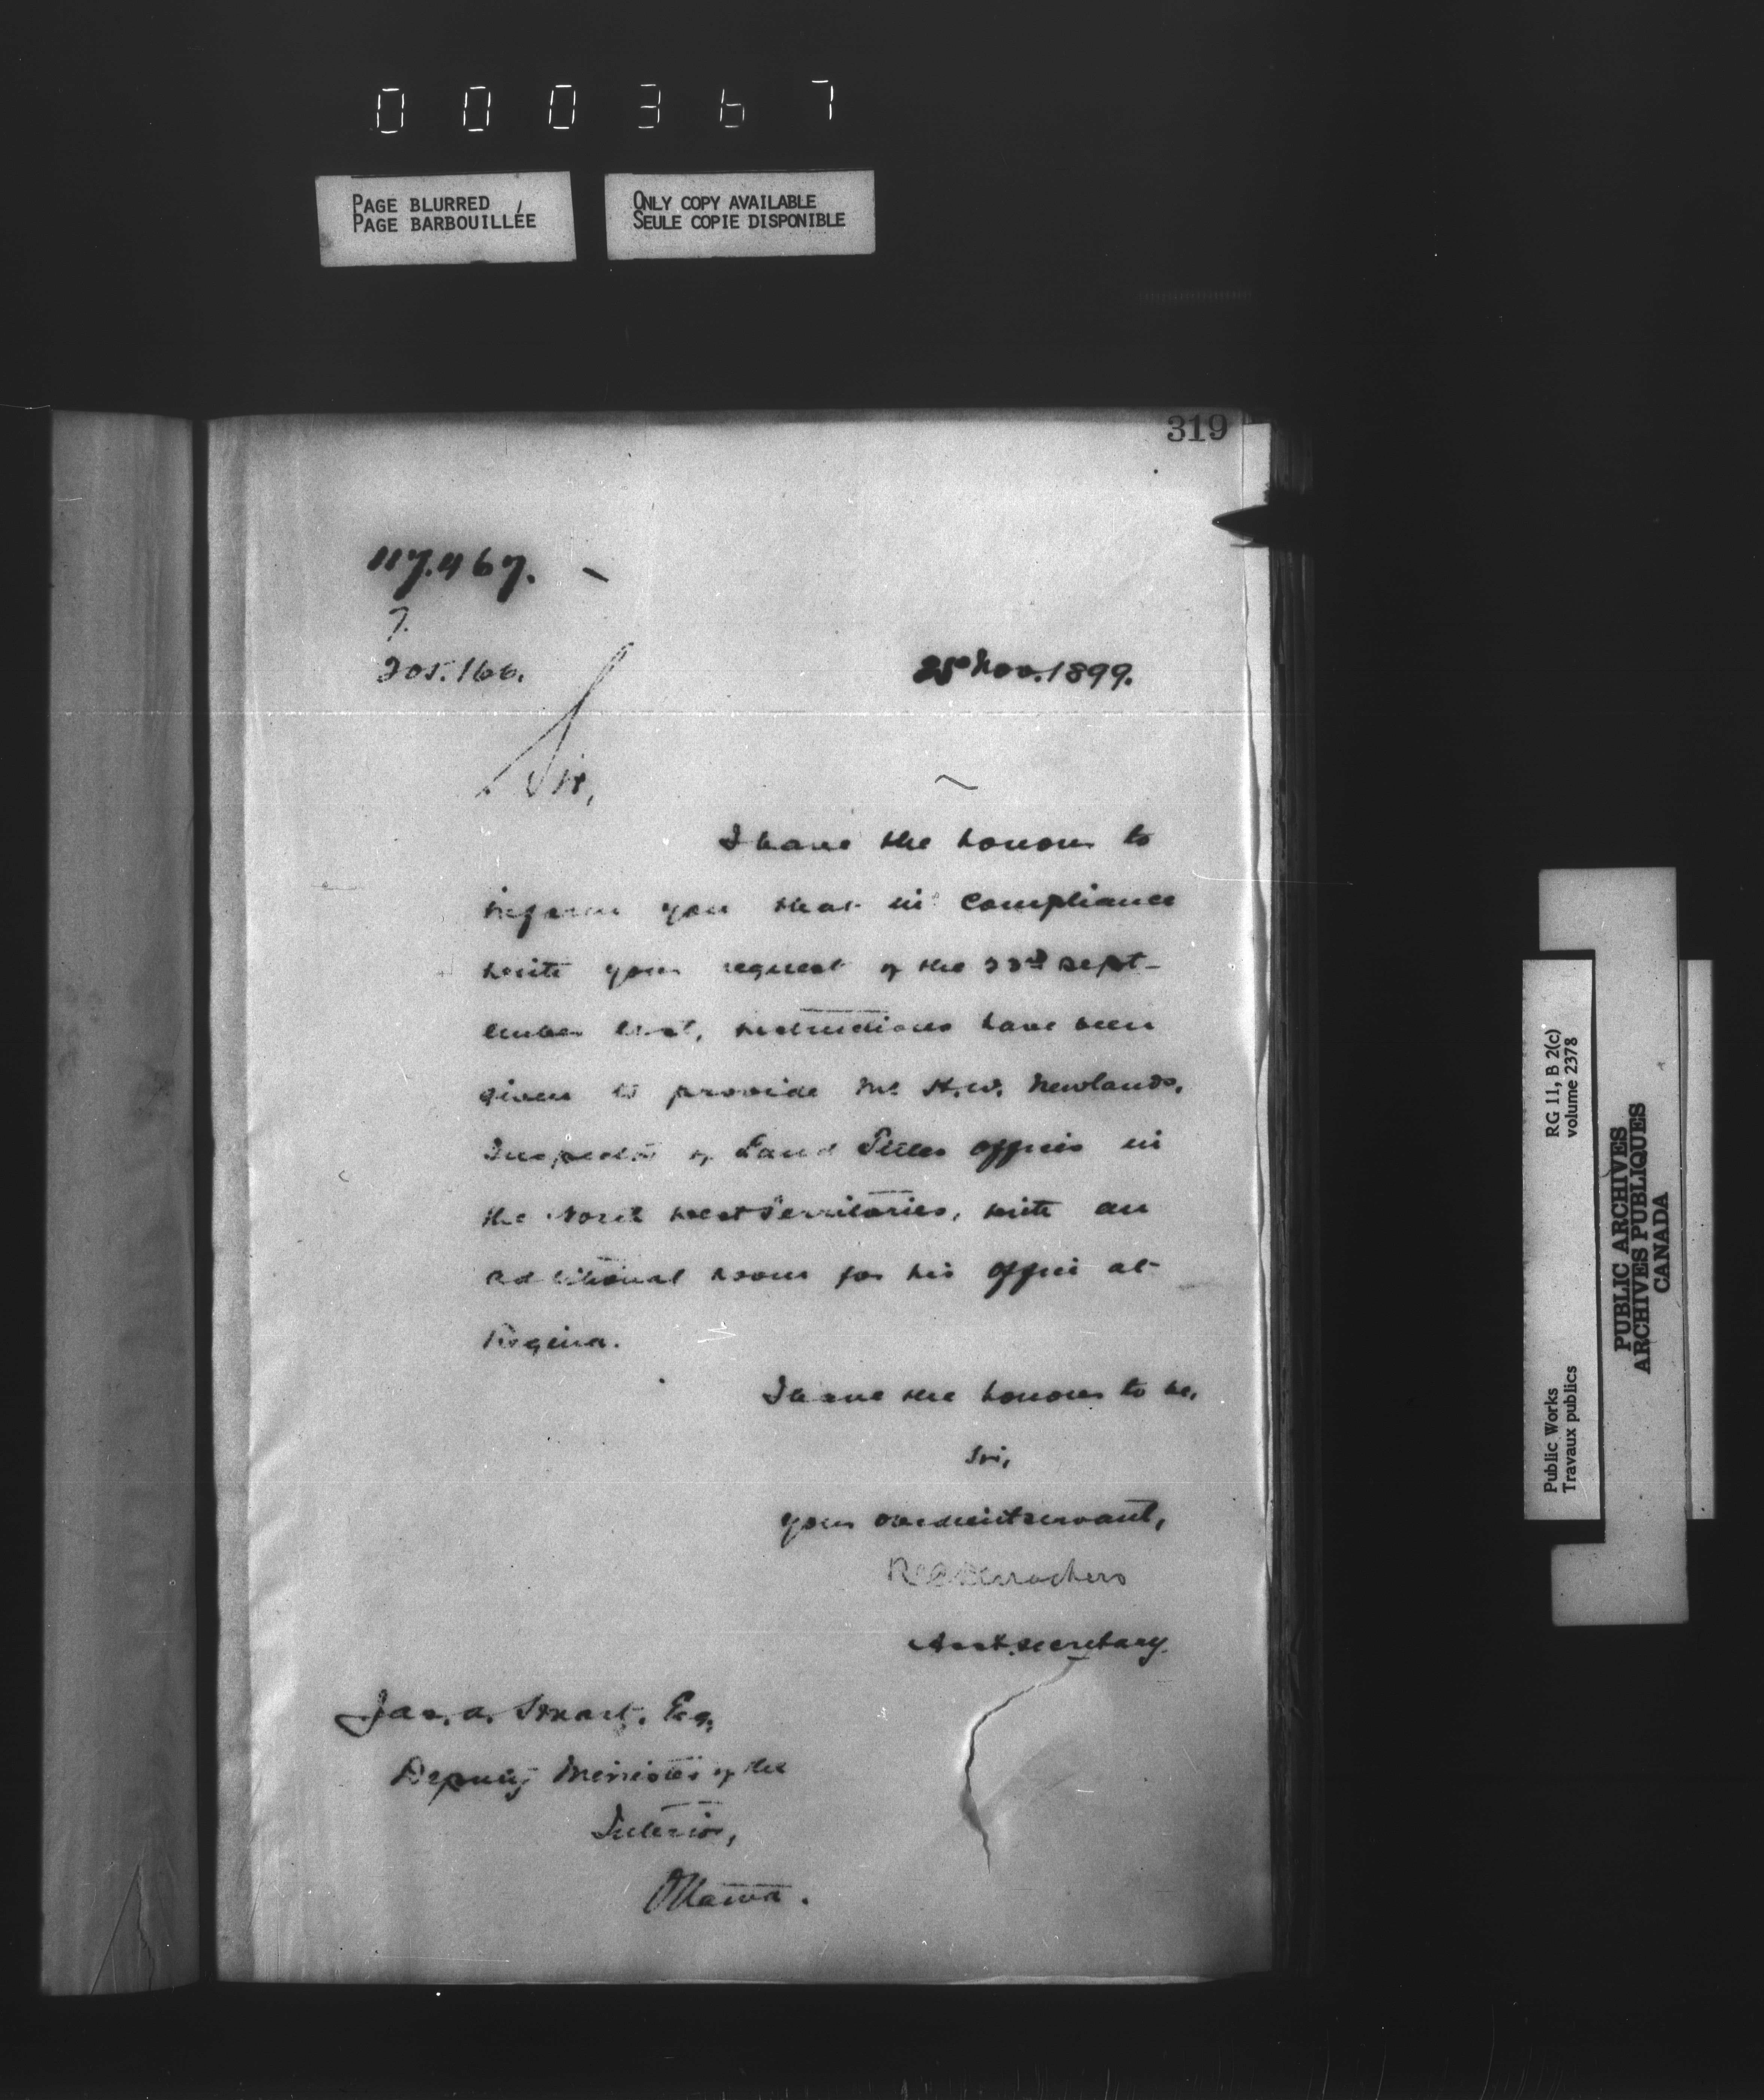 000367
PAGE BLURRED
PAGE BARBOUILLÉE
ONLY COPY AVAILABLE
SEULE COPIE DISPONIBLE
319
117.467.
7.
205.166.
25th Nov. 1899.
Sir,
I have the honour to
inform you that in compliance
with your request of the 23rd Sept-
ember last, instructions have been
given to provide Mr H.W. Newlands,
Inspector of Land Titles offices in
the North West Territories, with an
additional room for his office at
Regina.
I have the honour to be,
Sir,
your obedient servant,
Desrochers
Asst. secretary.
Jas. A. Smart, Esq,
Deputy Minister of the
Interior,
Ottawa.
Public Works
Travaux publics
RG 11, B 2(c)
volume 2378
PUBLIC ARCHIVES
ARCHIVES PUBLIQUES
CANADA